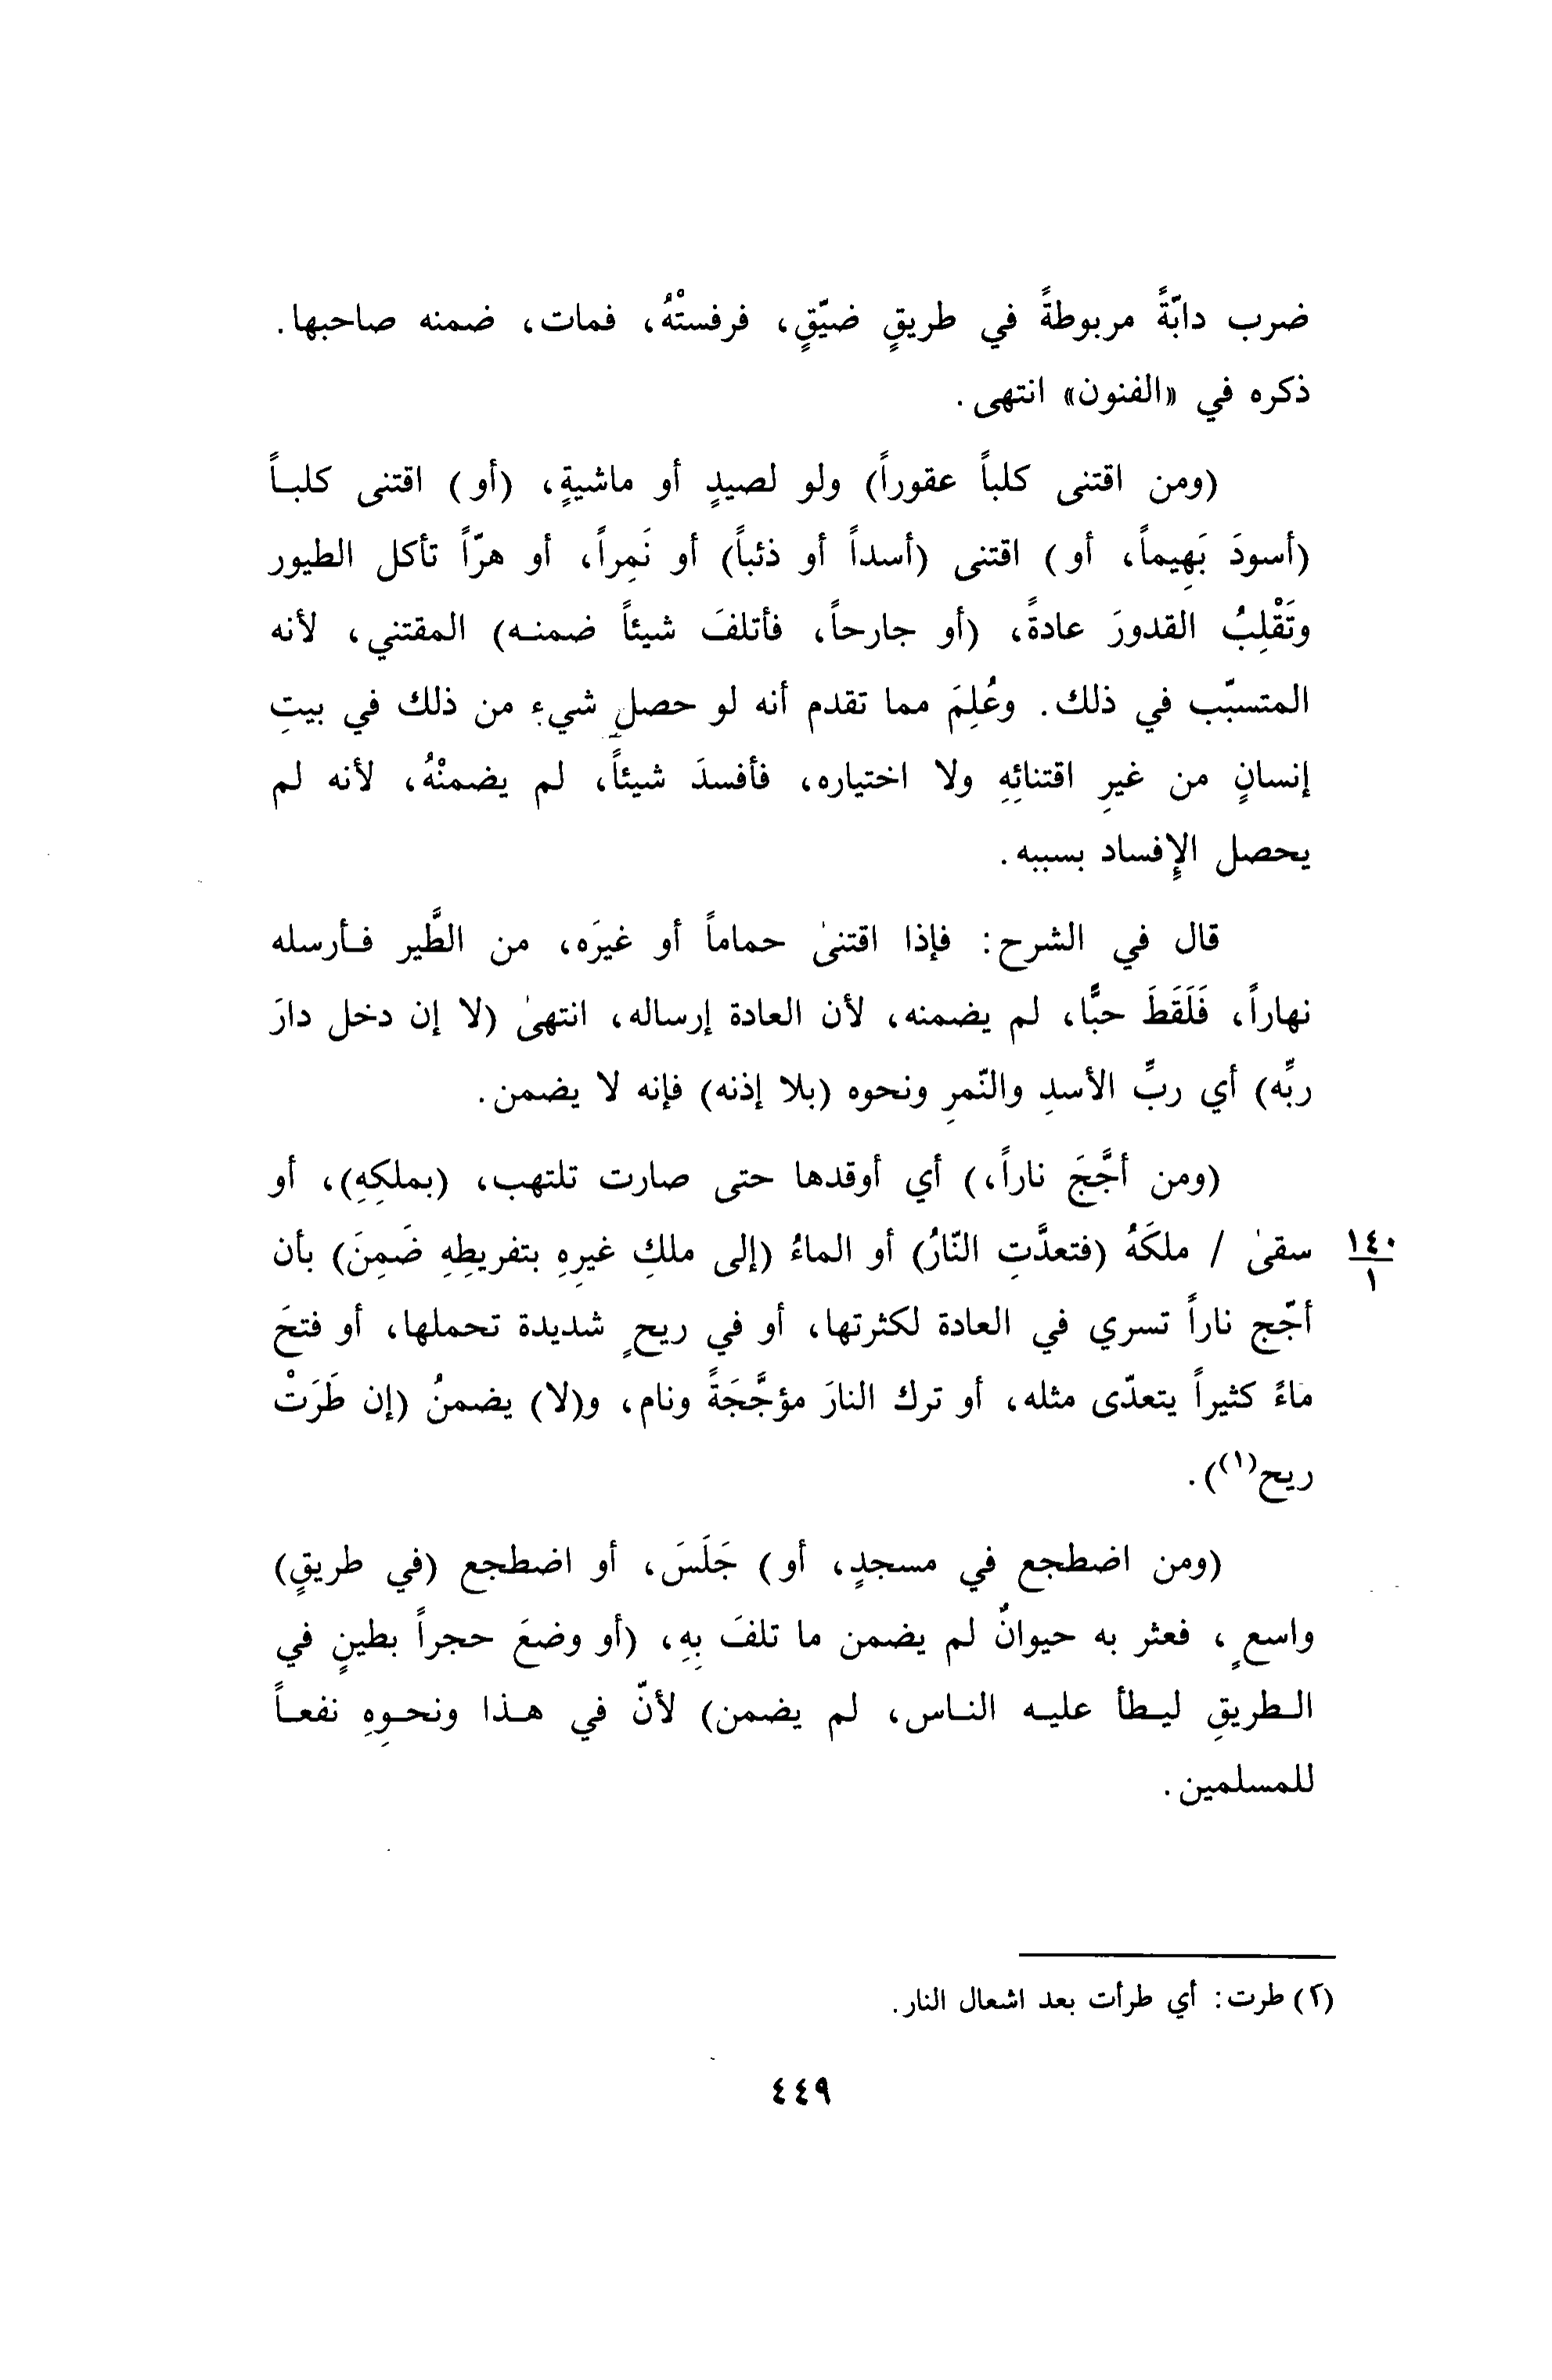 ضرب دابّةً مربوطةً في طريقٍ ضيّقٍ، فرفستْهُ، فمات، ضمنه صاحبها.
ذكره في «الفنون» انتهى.
(ومن اقتنى كلباً عقوراً) ولو لصيدٍ أو ماشيةٍ، (أو) اقتنى كلبـاً
(أسودَ بَهِيماً، أو) اقتنى (أسداً أو ذئباً) أو نَمِراً، أو هرّاً تأكل الطيور
وتَقْلِبُ القدورَ عادةً، (أو جارحاً، فأتلفَ شيئاً ضمنـه) المقتني، لأنه
المتسبّب في ذلك. وعُلِمَ مما تقدم أنه لو حصل شيء من ذلك في بيتِ
إنسانٍ من غيرِ اقتنائِهِ ولا اختياره، فأفسدَ شيئاً، لم يضمنْهُ، لأنه لم
يحصل الإِفساد بسببه.
قال في الشرح: فإذا اقتنىٰ حماماً أو غيرَه، من الطَّير فـأرسله
نهاراً، فَلَقَطَ حبًّا، لم يضمنه، لأن العادة إرساله، انتهىٰ (لا إن دخل دارَ
ربِّه) أي ربِّ الأسدِ والنّمرِ ونحوه (بلا إذنه) فإنه لا يضمن.
(ومن أجَّجَ ناراً،) أي أوقدها حتى صارت تلتهب، (بملكِهِ)، أو
سقىٰ / ملكَهُ (فتعدَّتِ النّارُ) أو الماءُ (إلى ملكِ غيرِهِ بتفريطِهِ ضَمِنَ) بأن
١٤٠
١
أجّج ناراً تسري في العادة لكثرتها، أو في ريحٍ شديدة تحملها، أو فتحَ
ماءً كثيراً يتعدّى مثله، أو ترك النارَ مؤجَّجَةً ونام، و(لا) يضمنُ (إن طَرَتْ
ريح(١)).
(ومن اضطجع في مسجدٍ، أو) جَلَسَ، أو اضطجع (في طريقٍ)
واسعٍ، فعثر به حيوانٌ لم يضمن ما تلفَ بِهِ، (أو وضعَ حجراً بطينٍ في
الـطريقِ ليـطأ عليـه النـاس، لم يضمن) لأنّ في هـذا ونحـوِهِ نفعـاً
للمسلمين.
(٢) طرت: أي طرأت بعد اشعال النار.
٤٤٩